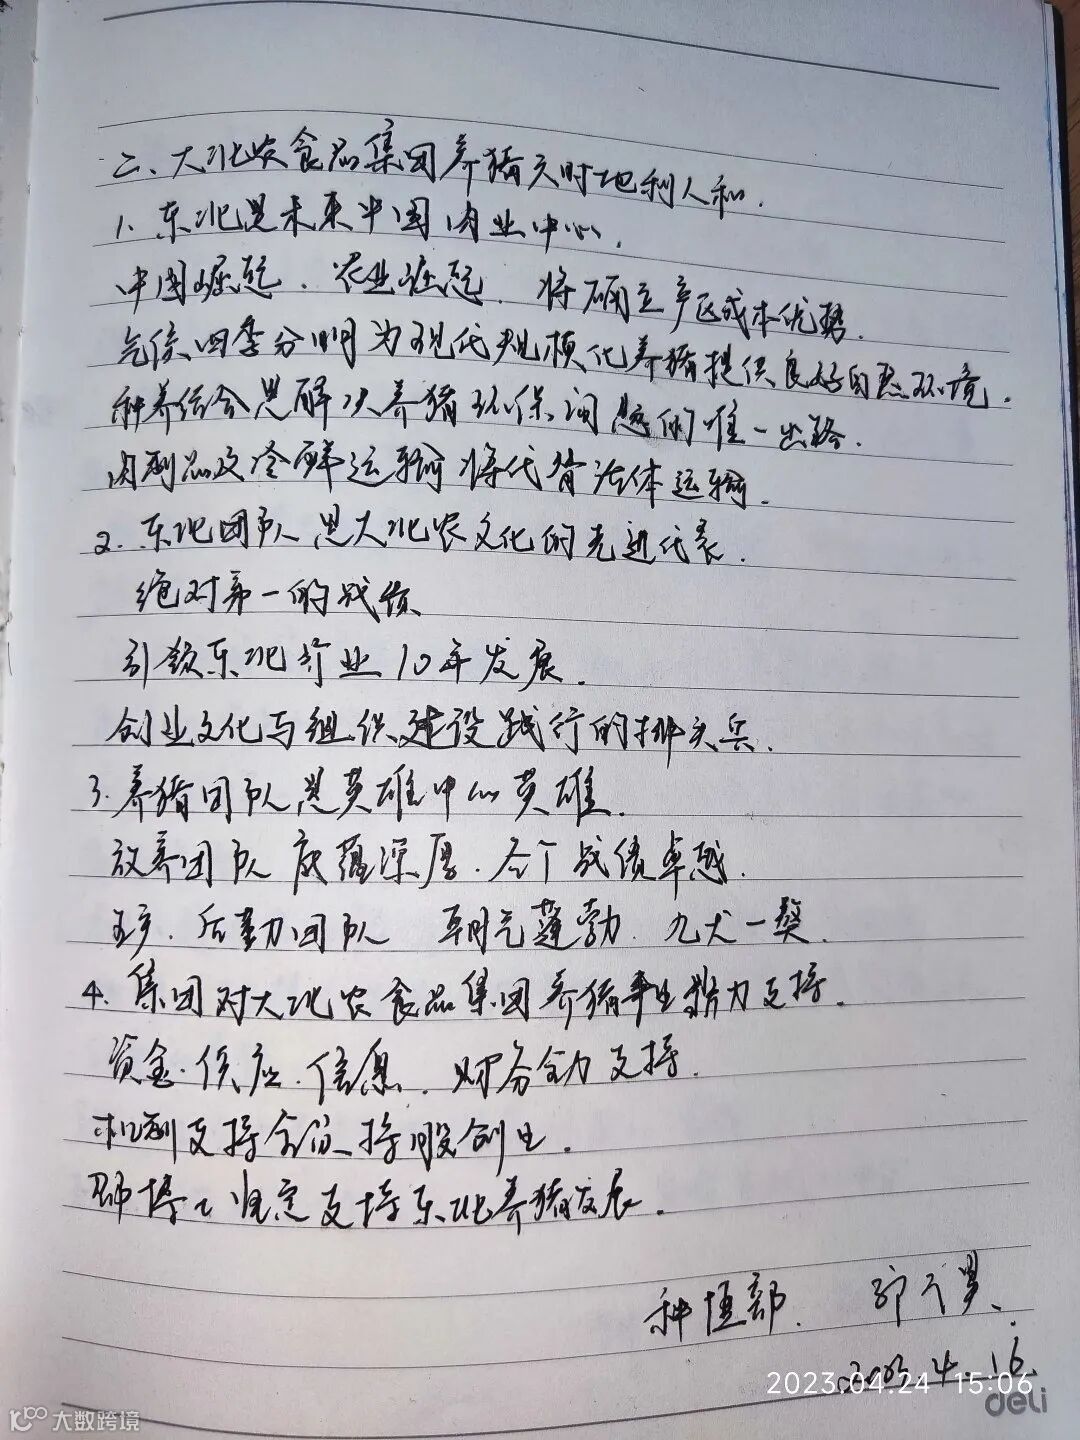 二、大北农食品集团养猪天时地利人和.
1、东北是未来中国肉业中心.
中国崛起、农业崛起、将确立产区成本优势.
气候四季分明为现代规模化养猪提供良好的热环境.
种养结合是解决养猪环保问题的唯一出路.
肉制品及冷鲜运输将代替活体运输.
2、东北团队是大北农文化的先进代表.
绝对第一的战绩
引领东北行业10年发展.
创业文化与组织建设践行的排头兵.
3、养猪团队是英雄中的英雄.
放养团队 底蕴深厚、个个战绩卓越.
后勤团队 朝气蓬勃、九犬一獒.
4、集团对大北农食品集团养猪事业鼎力支持.
资金、供应、信息、财务全力支持.
机制支持合伙、持股创业.
邵博士坚定支持东北养猪发展.
种植部.
4.16
2023.04.24 15:06
deli
大数跨境